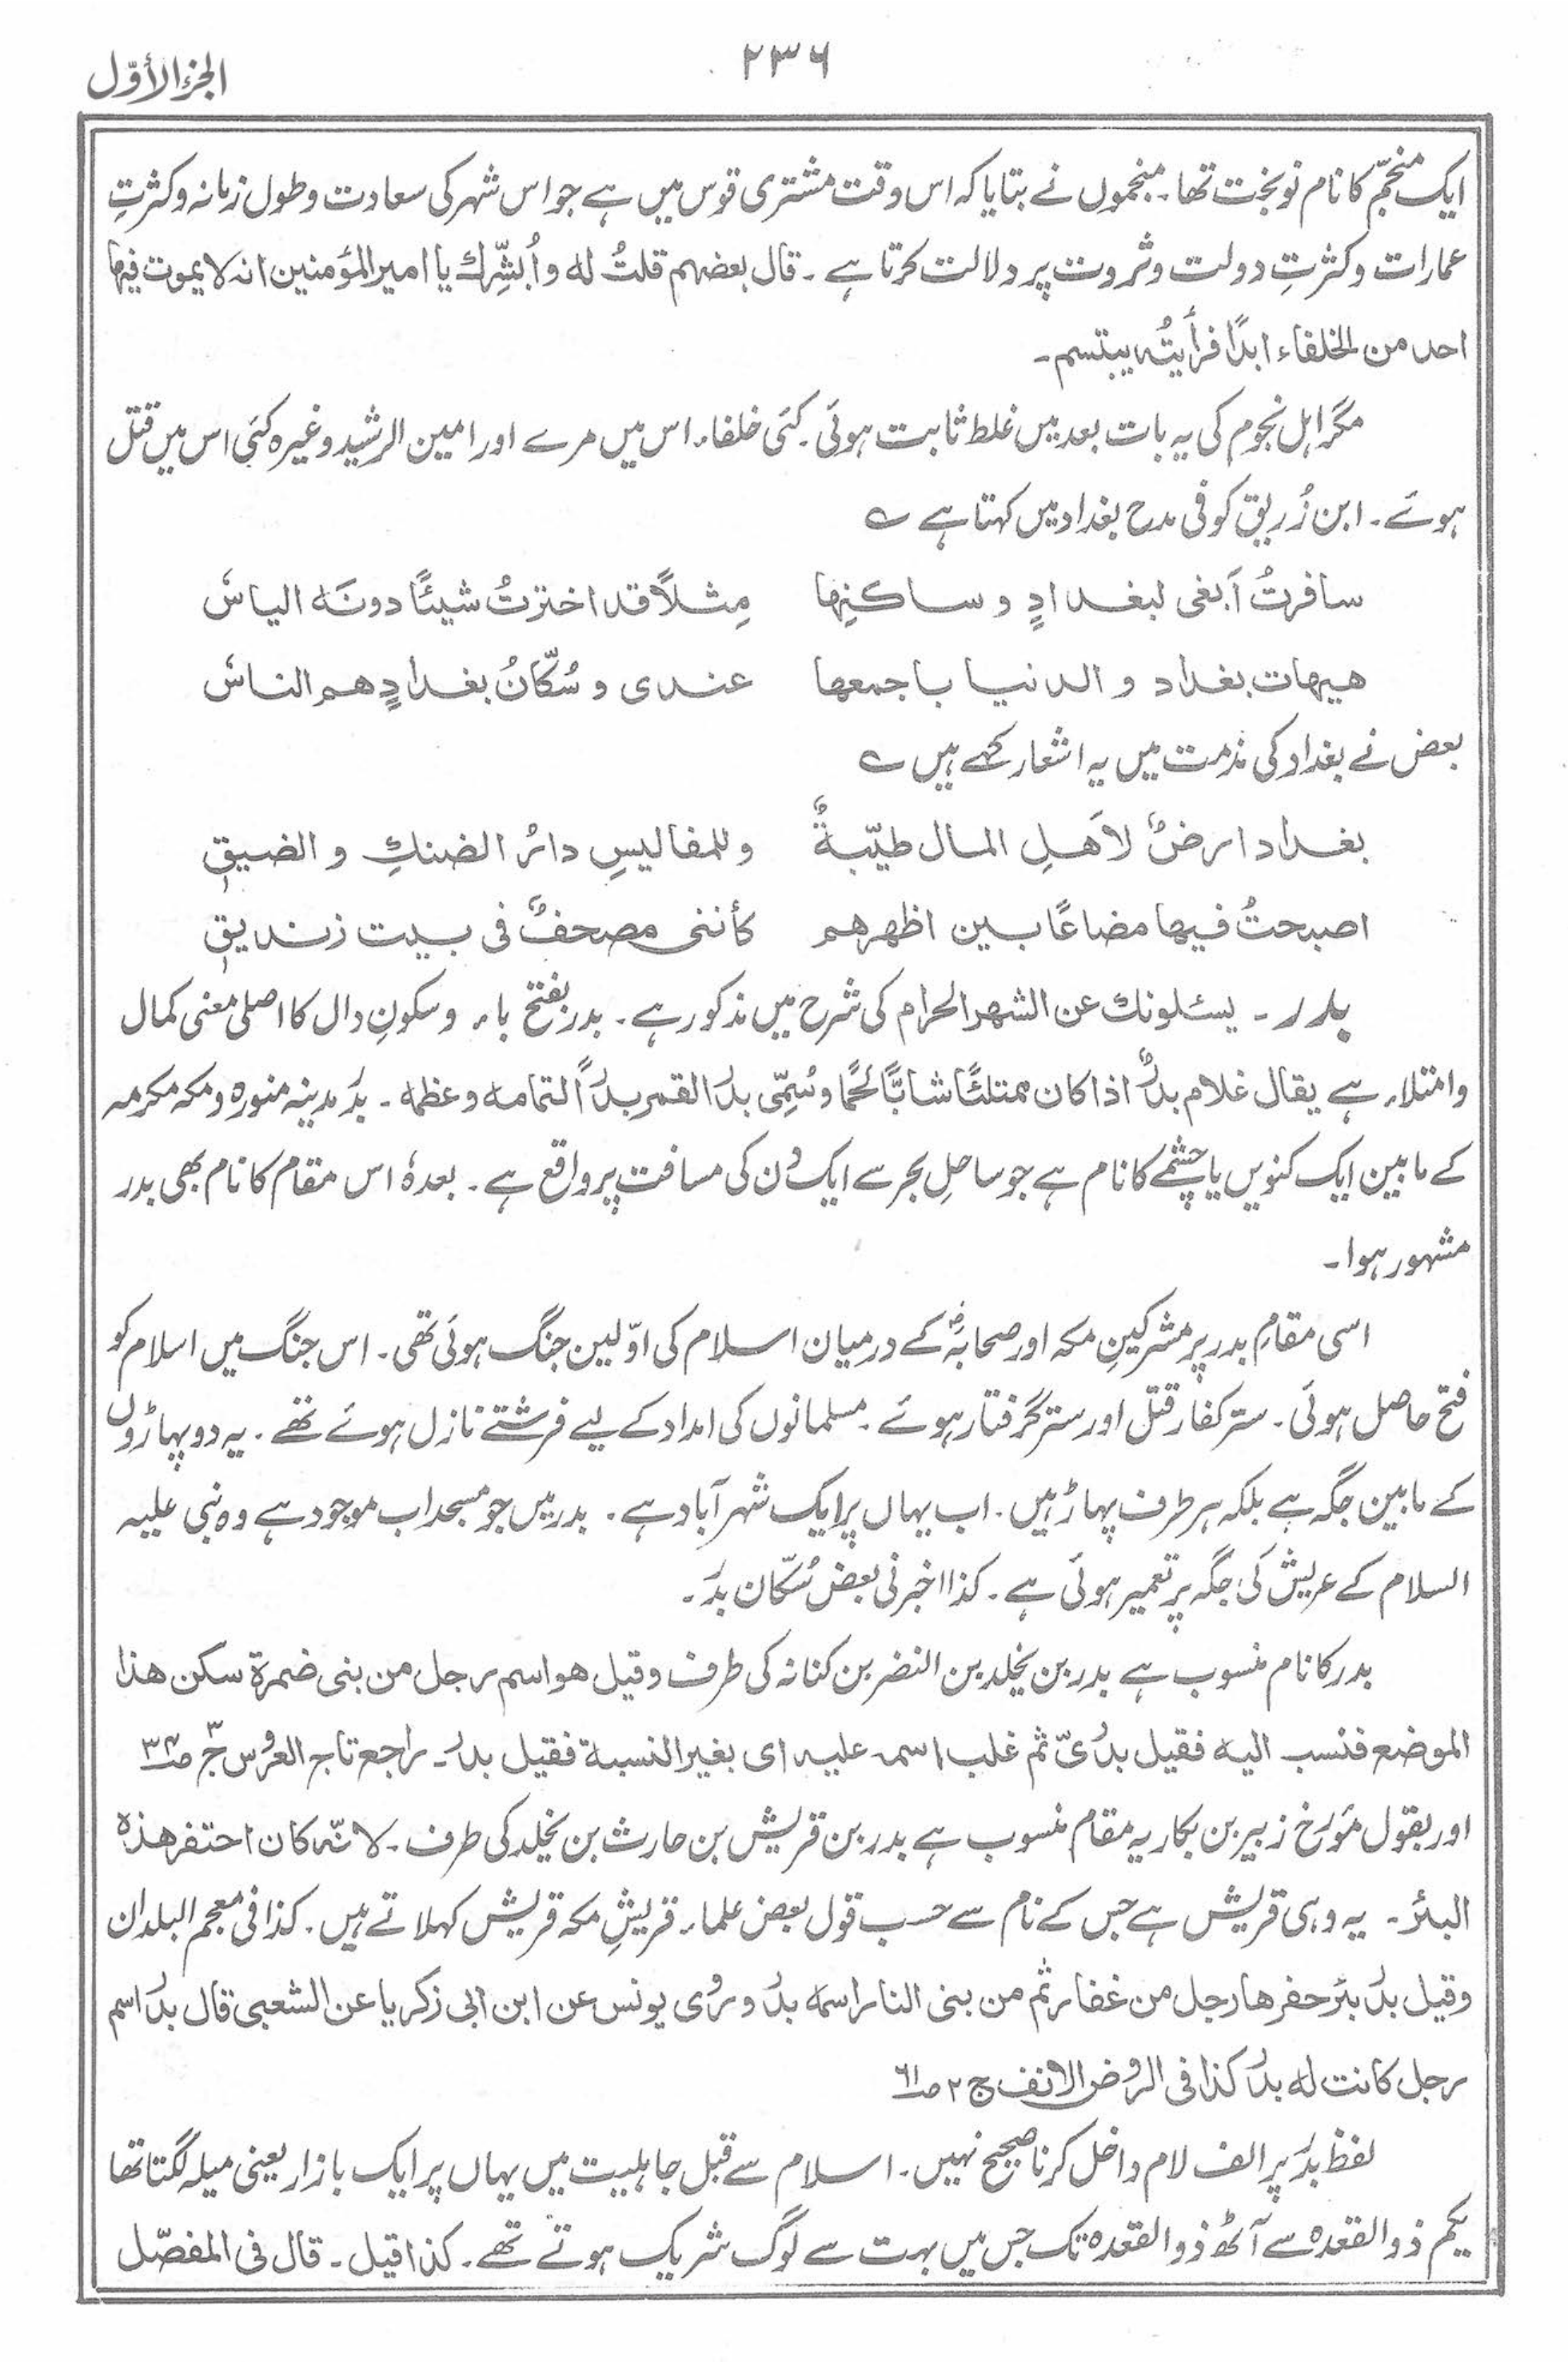 الجزء الأوّل
۲۳۶
ایک منجّم کا نام نوبخت تھا۔ منجموں نے بتایا کہ اس وقت مشتری قوس میں ہے جو اس شہر کی سعادت و طول زمانہ و کثرتِ
عمارات و کثرتِ دولت و ثروت پر دلالت کرتا ہے۔ قال بعضهم قلتُ له و أُبشّرك يا امير المؤمنين انه لا يموت فيها
احد من الخلفاء ابدًا فرأيتُه يبتسم۔
مگر اہل نجوم کی یہ بات بعد میں غلط ثابت ہوئی۔ کئی خلفاء اس میں مرے اور امین الرشید وغیرہ کئی اس میں قتل
ہوئے۔ ابن زُریق کوفی مدح بغداد میں کہتا ہے ؎
سافرتُ اَبغی لبغدادٍ و ساکنِها مِثلاً قد اخترتُ شیئًا دونَه الیاسُ
هیهات بغداد و الدنیا باجمعها عندی و سُکّانُ بغدادٍ هم الناسُ
بعض نے بغداد کی مذمت میں یہ اشعار کہے ہیں ؎
بغداد ارضٌ لاَهلِ المال طیّبةٌ وللمفالیسِ دارُ الضنكِ و الضیقِ
اصبحتُ فیها مضاعًا بین اظهرهم کأننی مصحفٌ فی بیت زندیقِ
بدر۔ یسئلونك عن الشهر الحرام کی شرح میں مذکور ہے۔ بدر بفتح باء و سکونِ دال کا اصلی معنی کمال
و امتلاء ہے یقال غلام بدرٌ اذا کان ممتلئًا شابًّا لحمًا و سُمِّی بدرُ القمر بدرًا لتمامه و عظمه۔ بدر مدینہ منورہ و مکہ مکرمہ
کے مابین ایک کنویں یا چشمے کا نام ہے جو ساحلِ بحر سے ایک دن کی مسافت پر واقع ہے۔ بعدہٗ اس مقام کا نام بھی بدر
مشہور ہوا۔
اسی مقامِ بدر پر مشرکینِ مکہ اور صحابہؓ کے درمیان اسلام کی اوّلین جنگ ہوئی تھی۔ اس جنگ میں اسلام کو
فتح حاصل ہوئی۔ ستر کفار قتل اور ستر گرفتار ہوئے۔ مسلمانوں کی امداد کے لیے فرشتے نازل ہوئے تھے۔ یہ دو پہاڑوں
کے مابین جگہ ہے بلکہ ہر طرف پہاڑ ہیں۔ اب یہاں پر ایک شہر آباد ہے۔ بدر میں جو مسجد اب موجود ہے وہ نبی علیہ
السلام کے عریش کی جگہ پر تعمیر ہوئی ہے۔ کذا اخبرنی بعض سُکّان بدر۔
بدر کا نام منسوب ہے بدر بن یخلد بن النضر بن کنانہ کی طرف وقیل هو اسم رجل من بنی ضمرة سکن هذا
الموضع فنسب الیه فقیل بدرُیّ ثم غلب اسمه علیه ای بغیر النسبة فقیل بدر۔ راجع تاج العروس ج۳ ص۳۴
اور بقول مؤرخ زبیر بن بکار یہ مقام منسوب ہے بدر بن قریش بن حارث بن یخلد کی طرف۔ لانّه کان احتفر هذه
البئر۔ یہ وہی قریش ہے جس کے نام سے حسب قول بعض علماء قریشِ مکہ قریش کہلاتے ہیں۔ کذا فی معجم البلدان
وقیل بدرُ بئر حفرها رجل من غفار ثم من بنی النار اسمه بدر و رُوی یونس عن ابن ابی زکریا عن الشعبی قال بدر اسم
رجل کانت له بدر کذا فی الروض الانف ج ۲ ص۶۱
لفظ بدر پر الف لام داخل کرنا صحیح نہیں۔ اسلام سے قبل جاہلیت میں یہاں پر ایک بازار یعنی میلہ لگتا تھا
یکم ذوالقعدہ سے آٹھ ذوالقعدہ تک جس میں بہت سے لوگ شریک ہوتے تھے۔ کذا قیل۔ قال فی المفصّل